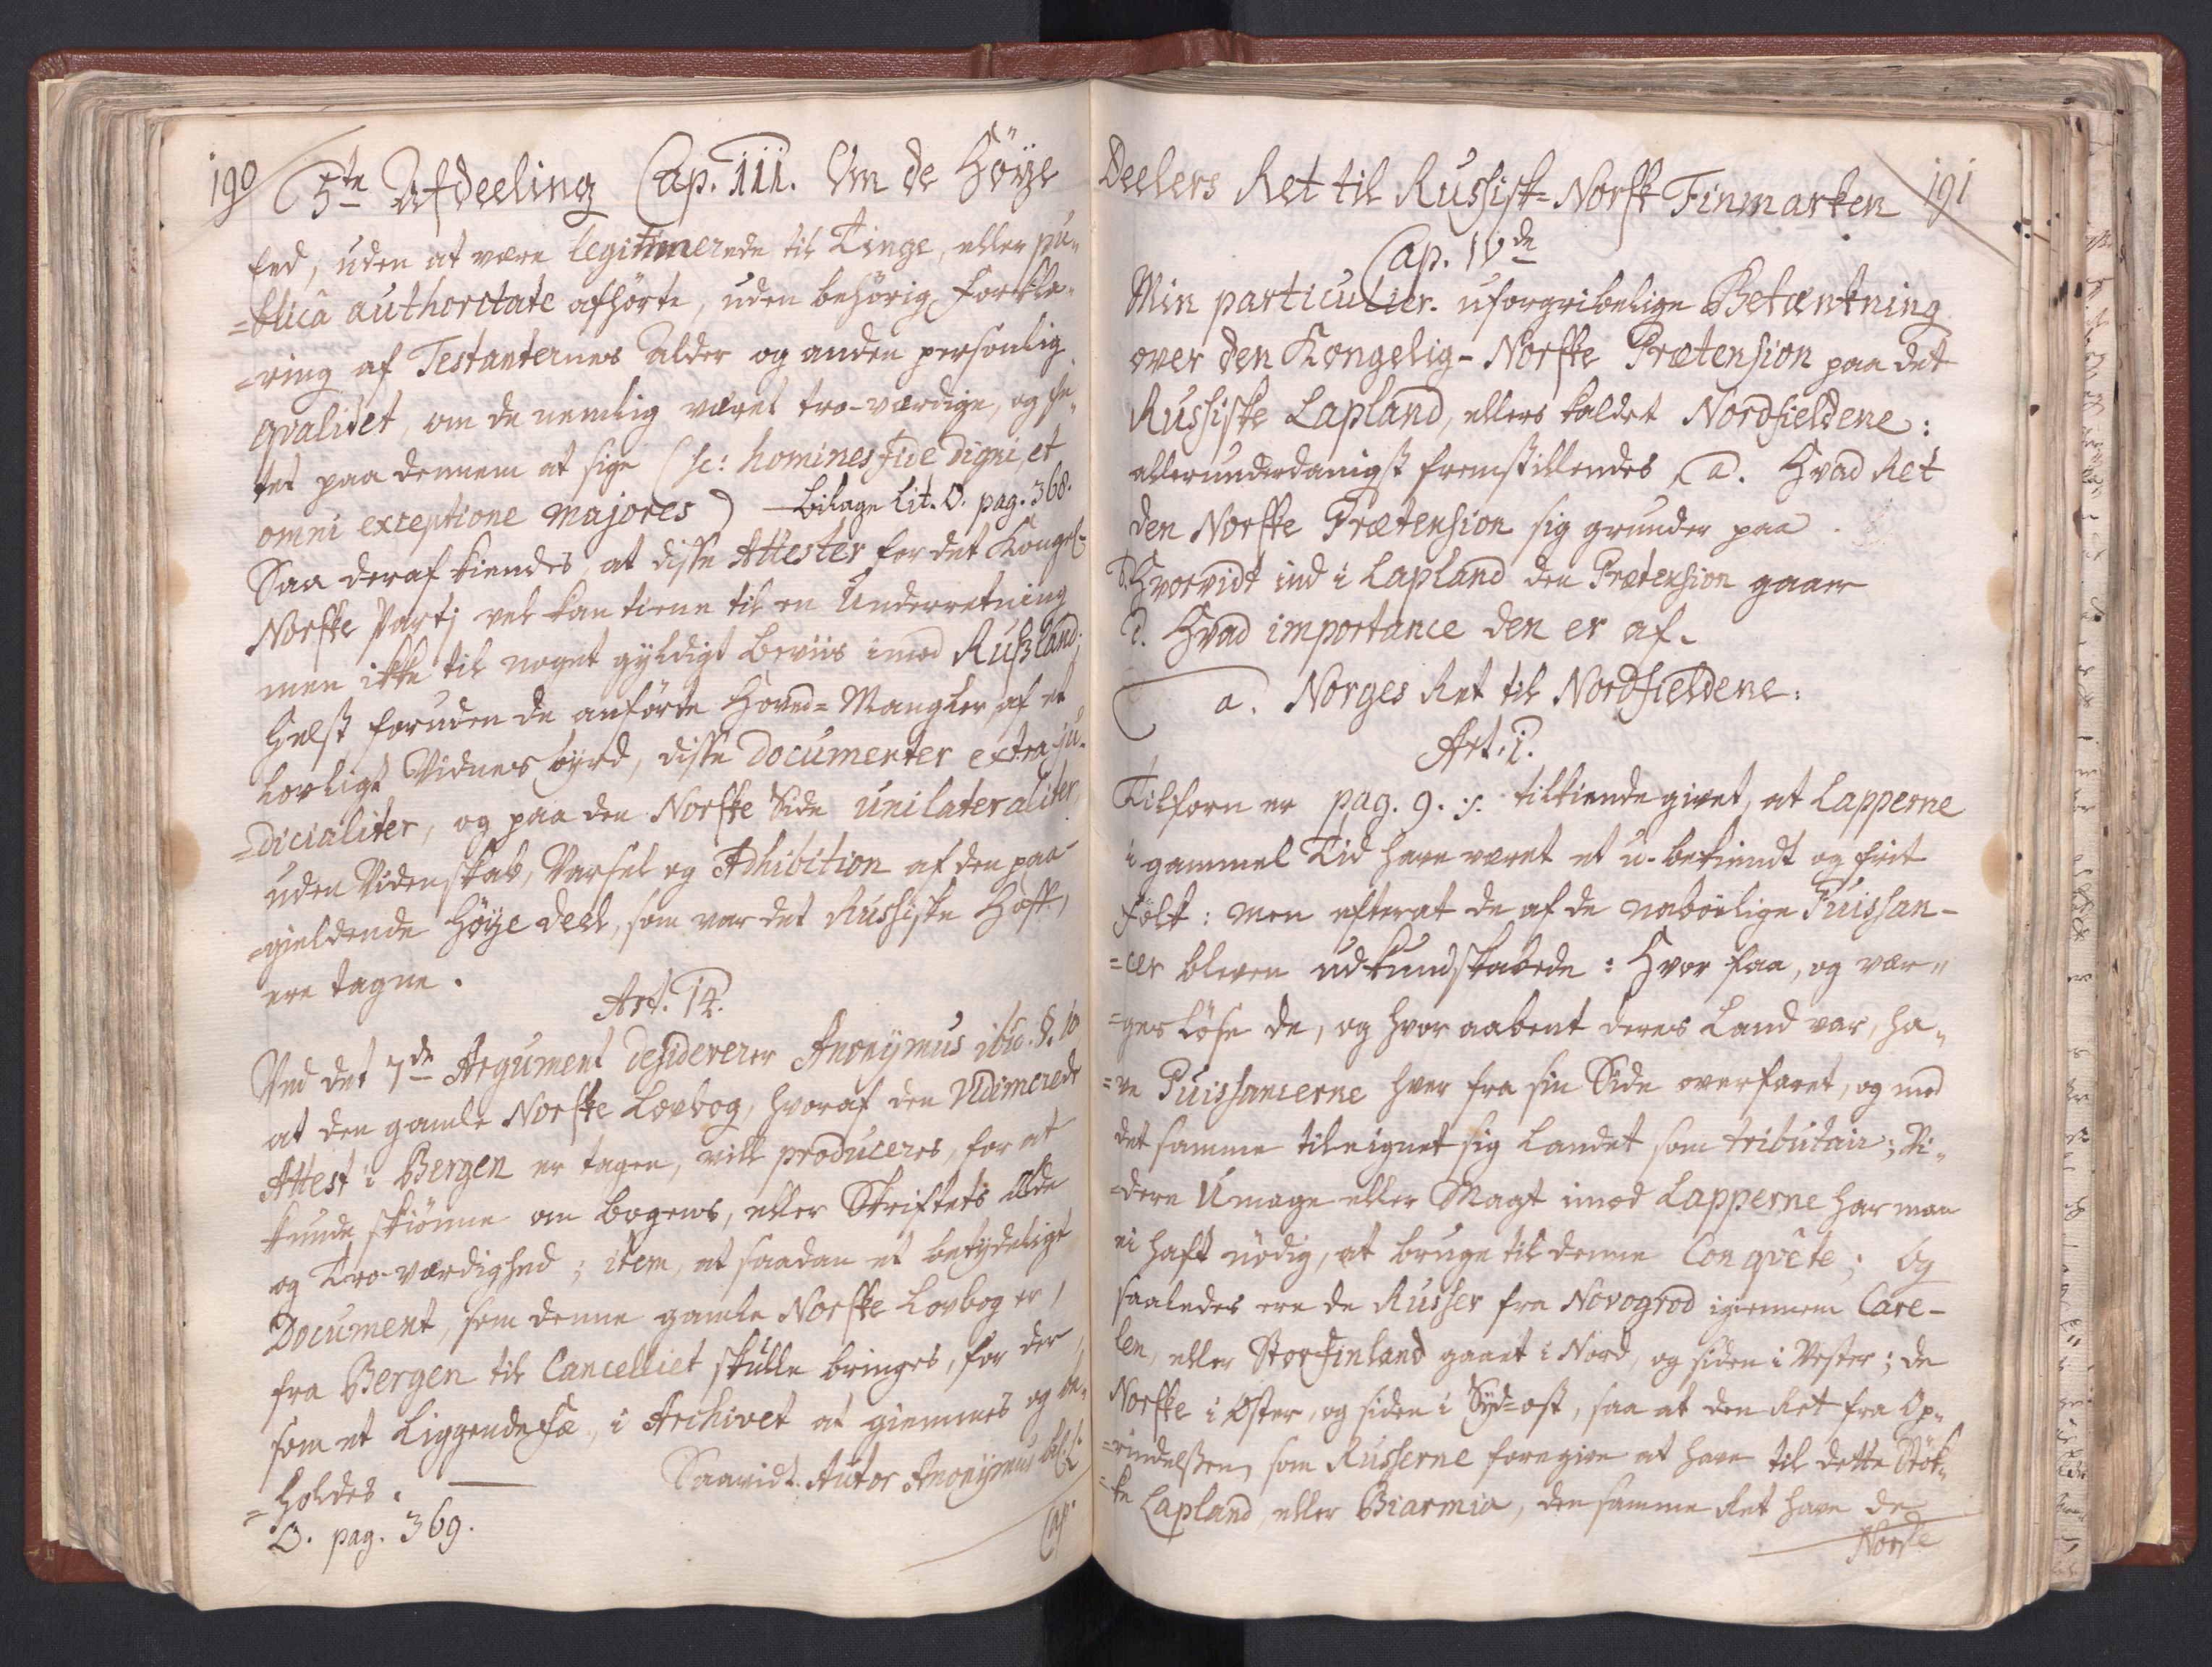 190
5te Afdeeling Cap. III. Om de Höÿe
Eed, uden at være legitimerede til Tinge, eller pu-
=blicâ authoritate afhörte, uden behörig forkla-
=ring af Testanternes Alder og anden personlig
qvalitet, om de nemlig været tro-værdige, og in-
tet paa dennem at sige (sc: homines fide digni, et
omni exceptione majores) Bilage Lit. O. pag. 368.
Saa deraf kiendes, at disse Attester for det Kongel-
Norske Partj vel kan tiene til en Underretning
men ikke til noget gÿldigt Beviis imod Rußland;
Helst foruden de anförte Hoved-Mangler, af et
Lovligt Vidnesbÿrd, disse Documenter extra-ju-
=dicialiter, og paa den Norske Side unilateraliter,
uden Videnskab, Varsel og Adhibition af den paa-
=gieldende Höÿe Deel, som var det Russiske Hoff,
ere tagne.
Art. 14.
Ved det 7de Argument desidererer Anonÿmus ibid. §. 10
at den gamle Norske Lovbog, hvoraf den Vidimerede
Attest i Bergen er tagen, vill produceres, for at
kunde skiönne om Bogens, eller Skriftets Ælde
og Tro-værdighed; item, at saadan et betÿdeligt
Document, som denne gamle Norske Lovbog er,
fra Bergen til Cancelliet skulle bringes, for der,
som et Liggendefæ, i Archivet at giemmes og be-
=holdes.
Saavidt Autor Anonÿmus
O. pag. 369.
Cap.
Deelers Ret til Russisk-Norsk Finmarken
191
Cap. IVde
Min particulier. uforgribelige Betænkning
over den Kongelig-Norske Prætension paa det
Russiske Lapland, ellers kaldet Nordfieldene:
allerunderdanigst fremstillendes, a. Hvad Ret
den Norske Prætension sig grunder paa
b. Hvorvidt ind i Lapland den Prætension gaaer
c. Hvad importance den er af.
a. Norges Ret til Nordfieldene:
Art. 1.
Tilforn er pag. 9. tilkiende givet, at Lapperne
i gammel Tid have været et u-bekiendt og frit
Folk: men efterat de af de naboelige Puissan-
=cer bleven udkundskabede: Hvor faa, og vær-
=geslöse de, og hvor aabent deres Land var, ha-
=ve Puissancerne hver fra sin Side overfaret, og med
det samme tileignet sig Landet som tributair; Vi-
=dere Umage eller Magt imod Lapperne har man
ei haft nödig, at bruge til denne Conqvête; Og
saaledes ere de Russer fra Novogrod igiennem Care-
len, eller Storfinland gaaet i Nord, og siden i Vester; de
Norske i Öster, og siden i Sÿd-ost, saa at den Ret fra Op-
=rindelßen, som Russerne foregive at have til dette Stÿk-
=ke Lapland, eller Biarmia, den samme Ret have de
Norske